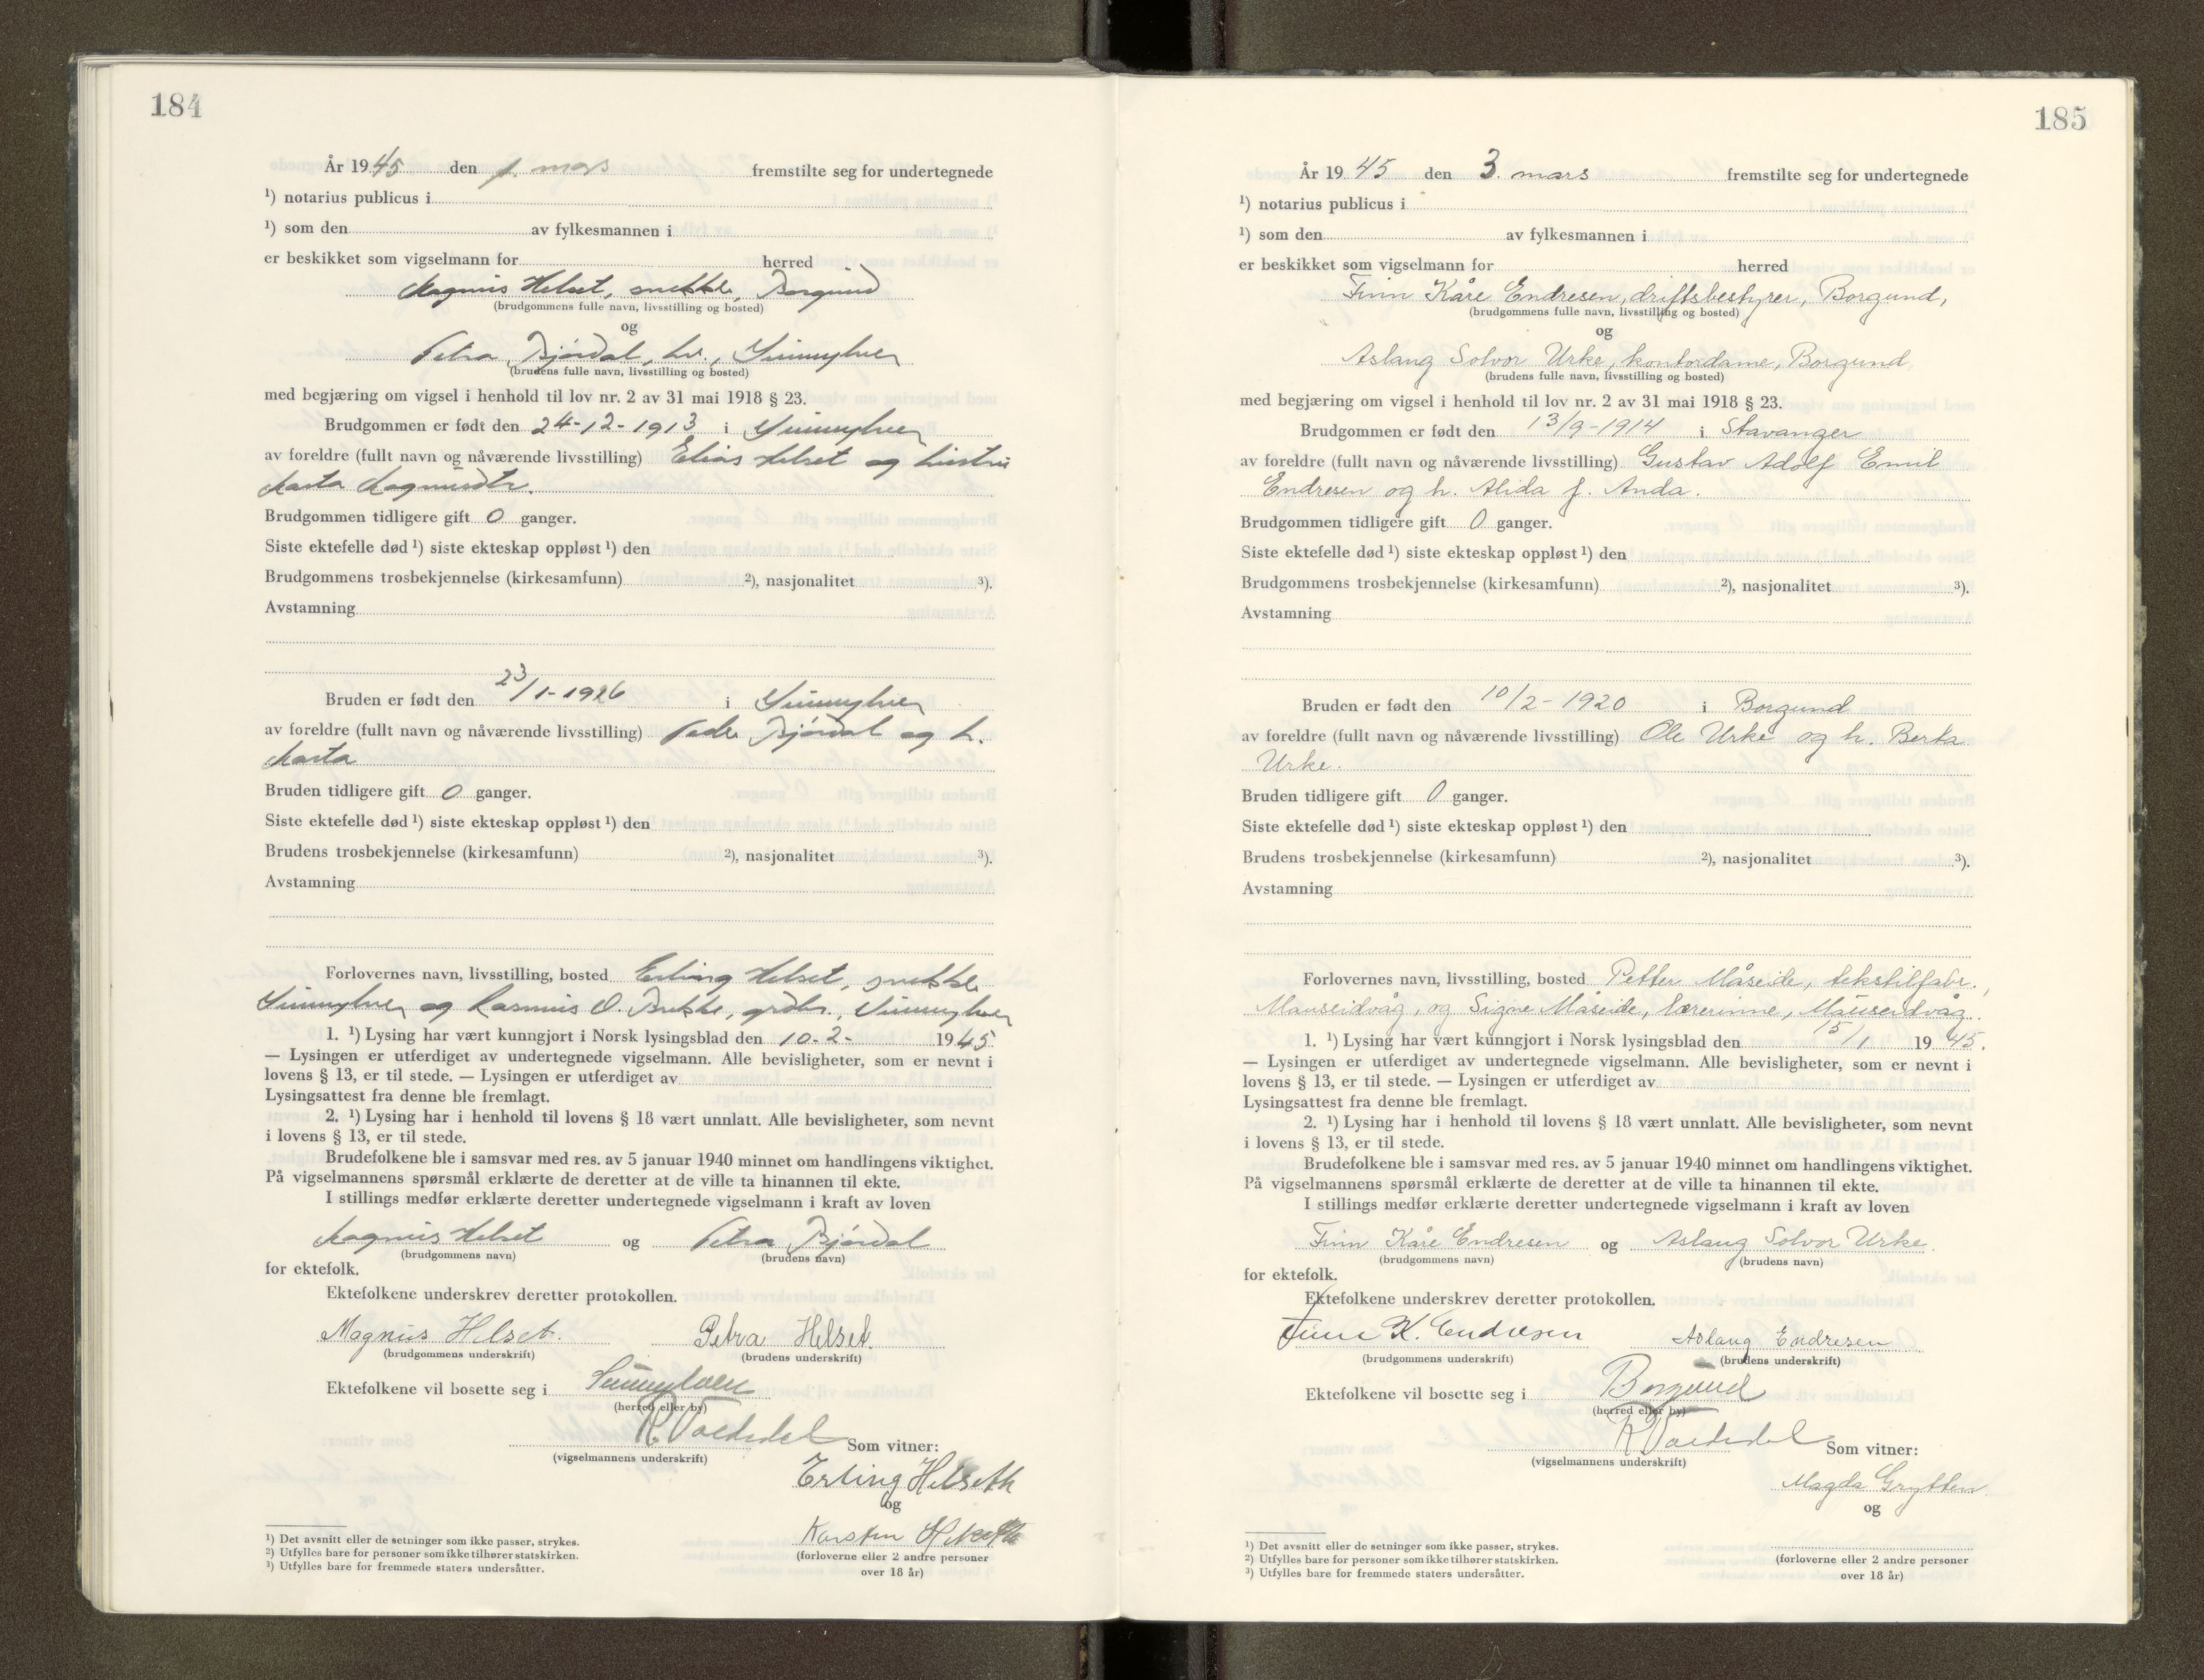 184
År 1945 den 1. mars fremstilte seg for undertegnede
¹) notarius publicus i
¹) som den av fylkesmannen i
er beskikket som vigselmann for herred
Magnus Helset, snekker, Borgund
(brudgommens fulle navn, livsstilling og bosted)
og
Petra Bjørdal, hv., Sunnylven
(brudens fulle navn, livsstilling og bosted)
med begjæring om vigsel i henhold til lov nr. 2 av 31 mai 1918 § 23.
Brudgommen er født den 24-12-1913 i Sunnylven
av foreldre (fullt navn og nåværende livsstilling) Elias Helset og hustru
Marta Magnusdtr.
Brudgommen tidligere gift 0 ganger.
Siste ektefelle død ¹) siste ekteskap oppløst ¹) den
Brudgommens trosbekjennelse (kirkesamfunn) ²), nasjonalitet ³).
Avstamning
Bruden er født den 23/1-1926 i Sunnylven
av foreldre (fullt navn og nåværende livsstilling) Peder Bjørdal og h.
Marta
Bruden tidligere gift 0 ganger.
Siste ektefelle død ¹) siste ekteskap oppløst ¹) den
Brudens trosbekjennelse (kirkesamfunn) ²), nasjonalitet ³).
Avstamning
Forlovernes navn, livsstilling, bosted Erling Helset, snekker
Sunnylven og Rasmus O. grdbr., Sunnylven
1. ¹) Lysing har vært kunngjort i Norsk lysingsblad den 10-2- 1945
— Lysingen er utferdiget av undertegnede vigselmann. Alle bevisligheter, som er nevnt i
lovens § 13, er til stede. — Lysingen er utferdiget av
Lysingsattest fra denne ble fremlagt.
2. ¹) Lysing har i henhold til lovens § 18 vært unnlatt. Alle bevisligheter, som nevnt
i lovens § 13, er til stede.
Brudefolkene ble i samsvar med res. av 5 januar 1940 minnet om handlingens viktighet.
På vigselmannens spørsmål erklærte de deretter at de ville ta hinannen til ekte.
I stillings medfør erklærte deretter undertegnede vigselmann i kraft av loven
Magnus Helset og Petra Bjørdal
(brudgommens navn) (brudens navn)
for ektefolk.
Ektefolkene underskrev deretter protokollen.
Magnus Helset. Petra Helset.
(brudgommens underskrift) (brudens underskrift)
Ektefolkene vil bosette seg i Sunnylven
(herred eller by)
Som vitner:
(vigselmannens underskrift)
Erling Helseth
og
Karsten Helseth
(forloverne eller 2 andre personer
over 18 år)
¹) Det avsnitt eller de setninger som ikke passer, strykes.
²) Utfylles bare for personer som ikke tilhører statskirken.
³) Utfylles bare for fremmede staters undersåtter.
185
År 1945 den 3. mars fremstilte seg for undertegnede
¹) notarius publicus i
¹) som den av fylkesmannen i
er beskikket som vigselmann for herred
Finn Kåre Endresen, driftsbestyrer, Borgund,
(brudgommens fulle navn, livsstilling og bosted)
og
Aslaug Solvor Urke, kontordame, Borgund
(brudens fulle navn, livsstilling og bosted)
med begjæring om vigsel i henhold til lov nr. 2 av 31 mai 1918 § 23.
Brudgommen er født den 13/9-1914 i Stavanger
av foreldre (fullt navn og nåværende livsstilling) Gustav Adolf Emil
Endresen og h. Alida f. Anda.
Brudgommen tidligere gift 0 ganger.
Siste ektefelle død ¹) siste ekteskap oppløst ¹) den
Brudgommens trosbekjennelse (kirkesamfunn) ²), nasjonalitet ³).
Avstamning
Bruden er født den 10/2-1920 i Borgund
av foreldre (fullt navn og nåværende livsstilling) Ole Urke og h. Berta
Urke.
Bruden tidligere gift 0 ganger.
Siste ektefelle død ¹) siste ekteskap oppløst ¹) den
Brudens trosbekjennelse (kirkesamfunn) ²), nasjonalitet ³).
Avstamning
Forlovernes navn, livsstilling, bosted Petter Måseide, tekstilfabr.,
Mauseidvåg, og Signe Måseide, lærerinne, Mauseidvåg.
1. ¹) Lysing har vært kunngjort i Norsk lysingsblad den 15/1 1945.
— Lysingen er utferdiget av undertegnede vigselmann. Alle bevisligheter, som er nevnt i
lovens § 13, er til stede. — Lysingen er utferdiget av
Lysingsattest fra denne ble fremlagt.
2. ¹) Lysing har i henhold til lovens § 18 vært unnlatt. Alle bevisligheter, som nevnt
i lovens § 13, er til stede.
Brudefolkene ble i samsvar med res. av 5 januar 1940 minnet om handlingens viktighet.
På vigselmannens spørsmål erklærte de deretter at de ville ta hinannen til ekte.
I stillings medfør erklærte deretter undertegnede vigselmann i kraft av loven
Finn Kåre Endresen og Aslaug Solvor Urke.
(brudgommens navn) (brudens navn)
for ektefolk.
Ektefolkene underskrev deretter protokollen.
Finn K. Endresen Aslaug Endresen
(brudgommens underskrift) (brudens underskrift)
Ektefolkene vil bosette seg i Borgund
(herred eller by)
Som vitner:
(vigselmannens underskrift)
Magda Grytten
og
(forloverne eller 2 andre personer
over 18 år)
¹) Det avsnitt eller de setninger som ikke passer, strykes.
²) Utfylles bare for personer som ikke tilhører statskirken.
³) Utfylles bare for fremmede staters undersåtter.